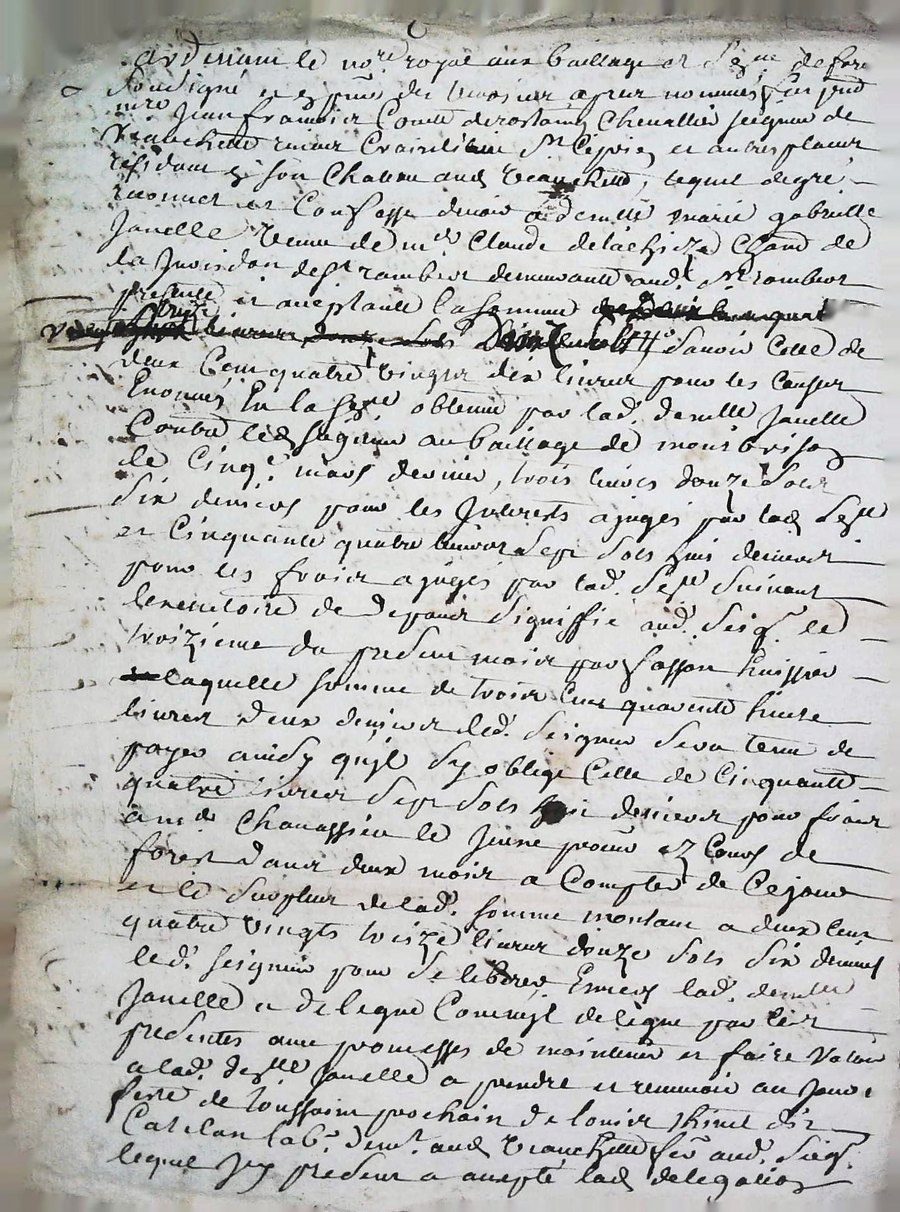 Pardevant le no.re royal aux baillage et Sen.ee de fore
soussigné et en p.nce des temoins apres nommés fut pnt
m.re Jean françois Comte de rostaing Chevallier seigneur de
veauchette rivas Craintilieu St Cyprien et autres places
residant en son Chateau aud veauchette, lequel de gré
reconnoit et Confesse devoir a demlle marie gabrielle
Janelle veuve de m.re Claude de lachieze Chand de
la Juridon de St rambert demeurante aud. St rambert
presente et acceptante la somme
livres douze sols deniers Savoir Celle de
deux Cent quatre vingts dix livres pour les Causes
Enoncés En la Senee obtenue par lad. demlle Janelle
Contre led seigneur au baillage de montbrison
le Cinq.e mars dernier, trois livres douze sols
six deniers pour les Interests ajugés par lad Sence
et Cinquante quatre livres sept sols huit deniers
pour les fraix ajugés par lad. Sence suivant
lexecutoire de depans signiffié aud. Seigr. le
troizieme du present mois par sasson huissier
laquelle somme de trois Cens quarente huit
livres deux deniers led. Seigneur sera tenu de
payer ainsy qu'il s'y oblige Celle de Cinquante
quatre livres sept sols huit deniers pour fraix
a m.re Chavassieu le Jeune procur ez Cours de
forest dans deux mois a Compter de Ce jour
et le surplus de lad. somme montant a deux Cens
quatre vingts treize livres douze sols six deniers
led. seigneur pour se liberer Envers lad. demlle
Janelle a delegué Comme il delegue par les
presentes avec promesses de maintenir et faire valoir
a lad. deslle Janelle a prendre et recevoir au Jour
feste de toussaint prochain de louis thiret dit
Catelan lab.r dem.t aud veauchette fer.r aud. Seigr.
lequel Icy present a accepté lad delegation